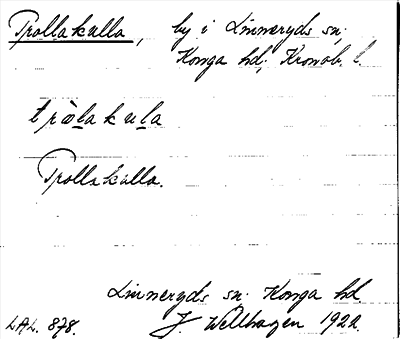 Trollakulla, by i Linneryds sn,
Konga hd, Kronob. l.
tròlakula
Trollakulla.
Linneryds sn. Konga hd.
LAL. 878. J. Wellhagen 1922.